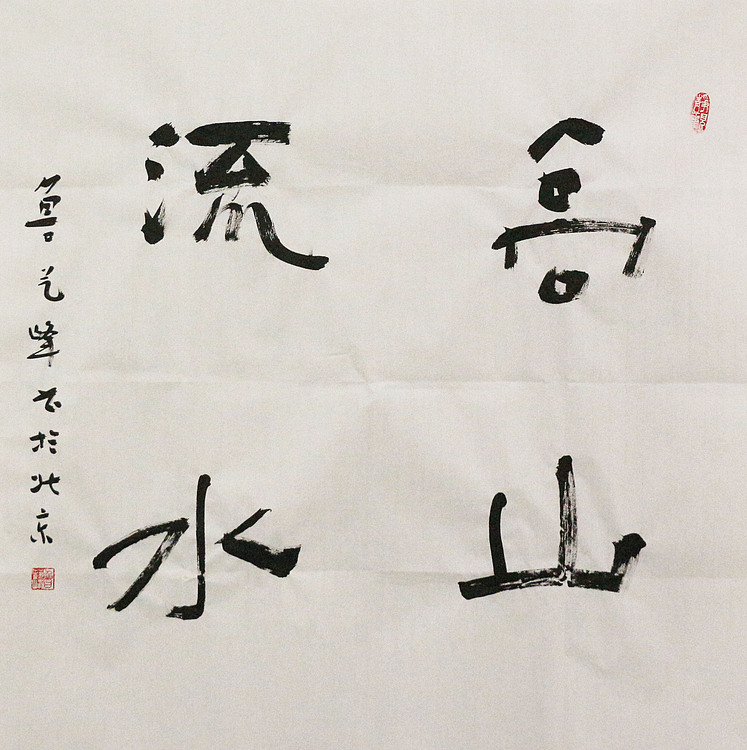 高山
流水
鲁艺峰书于北京